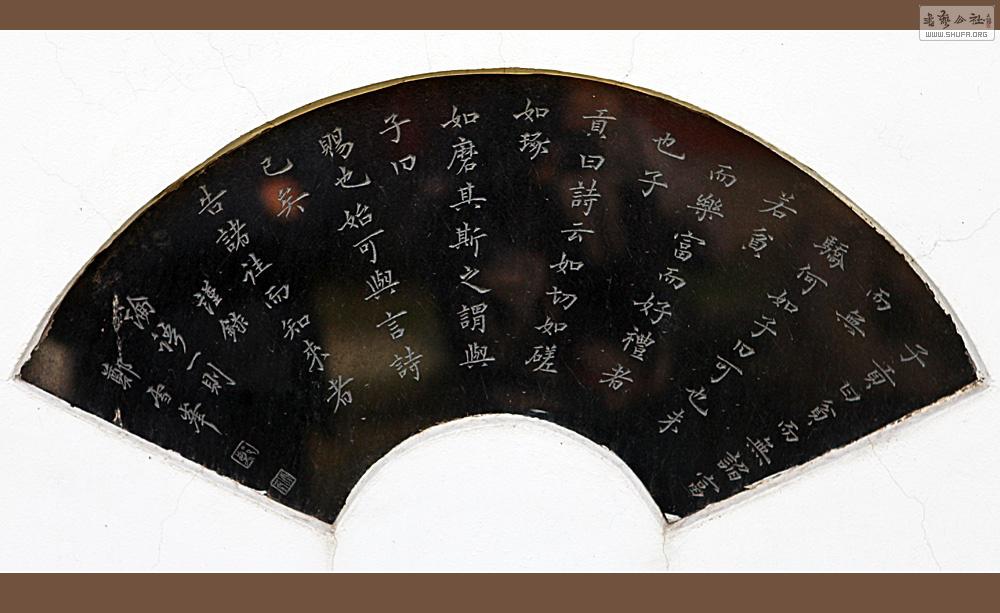 子貢曰貧而無諂富
而無
驕何如子曰可也未
若貧
而樂富而好禮者
也子
貢曰詩云如切如磋
如琢
如磨其斯之謂與
子曰
賜也始可與言詩
已矣
告諸往而知來者
謹錄
論語一則
鄭峯
書藝公社
WWW.SHUFA.ORG